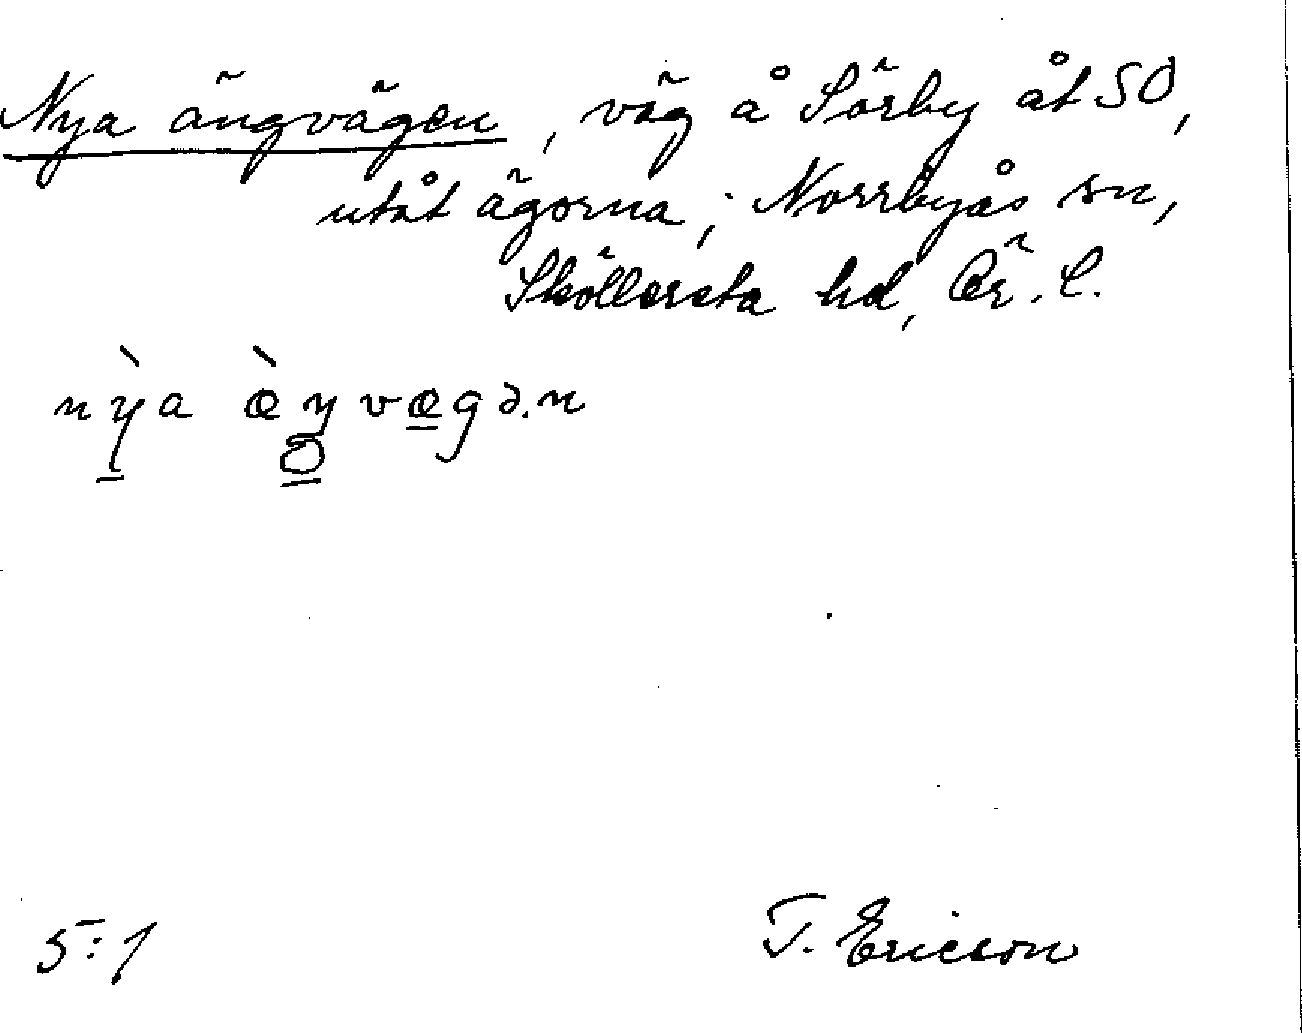 Nya ängvägen, väg å Sörby åt SO,
utåt ägorna; Norrbyås sn,
Sköllersta hd, Ör. l.
nỳa æ̀ŋvægə.n
5:1
T. Ericson